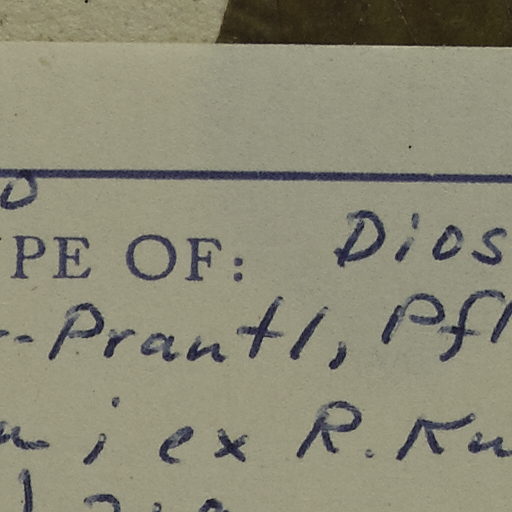 YPE OF: Dios
--Prantl, Pfl
; ex R. Ku